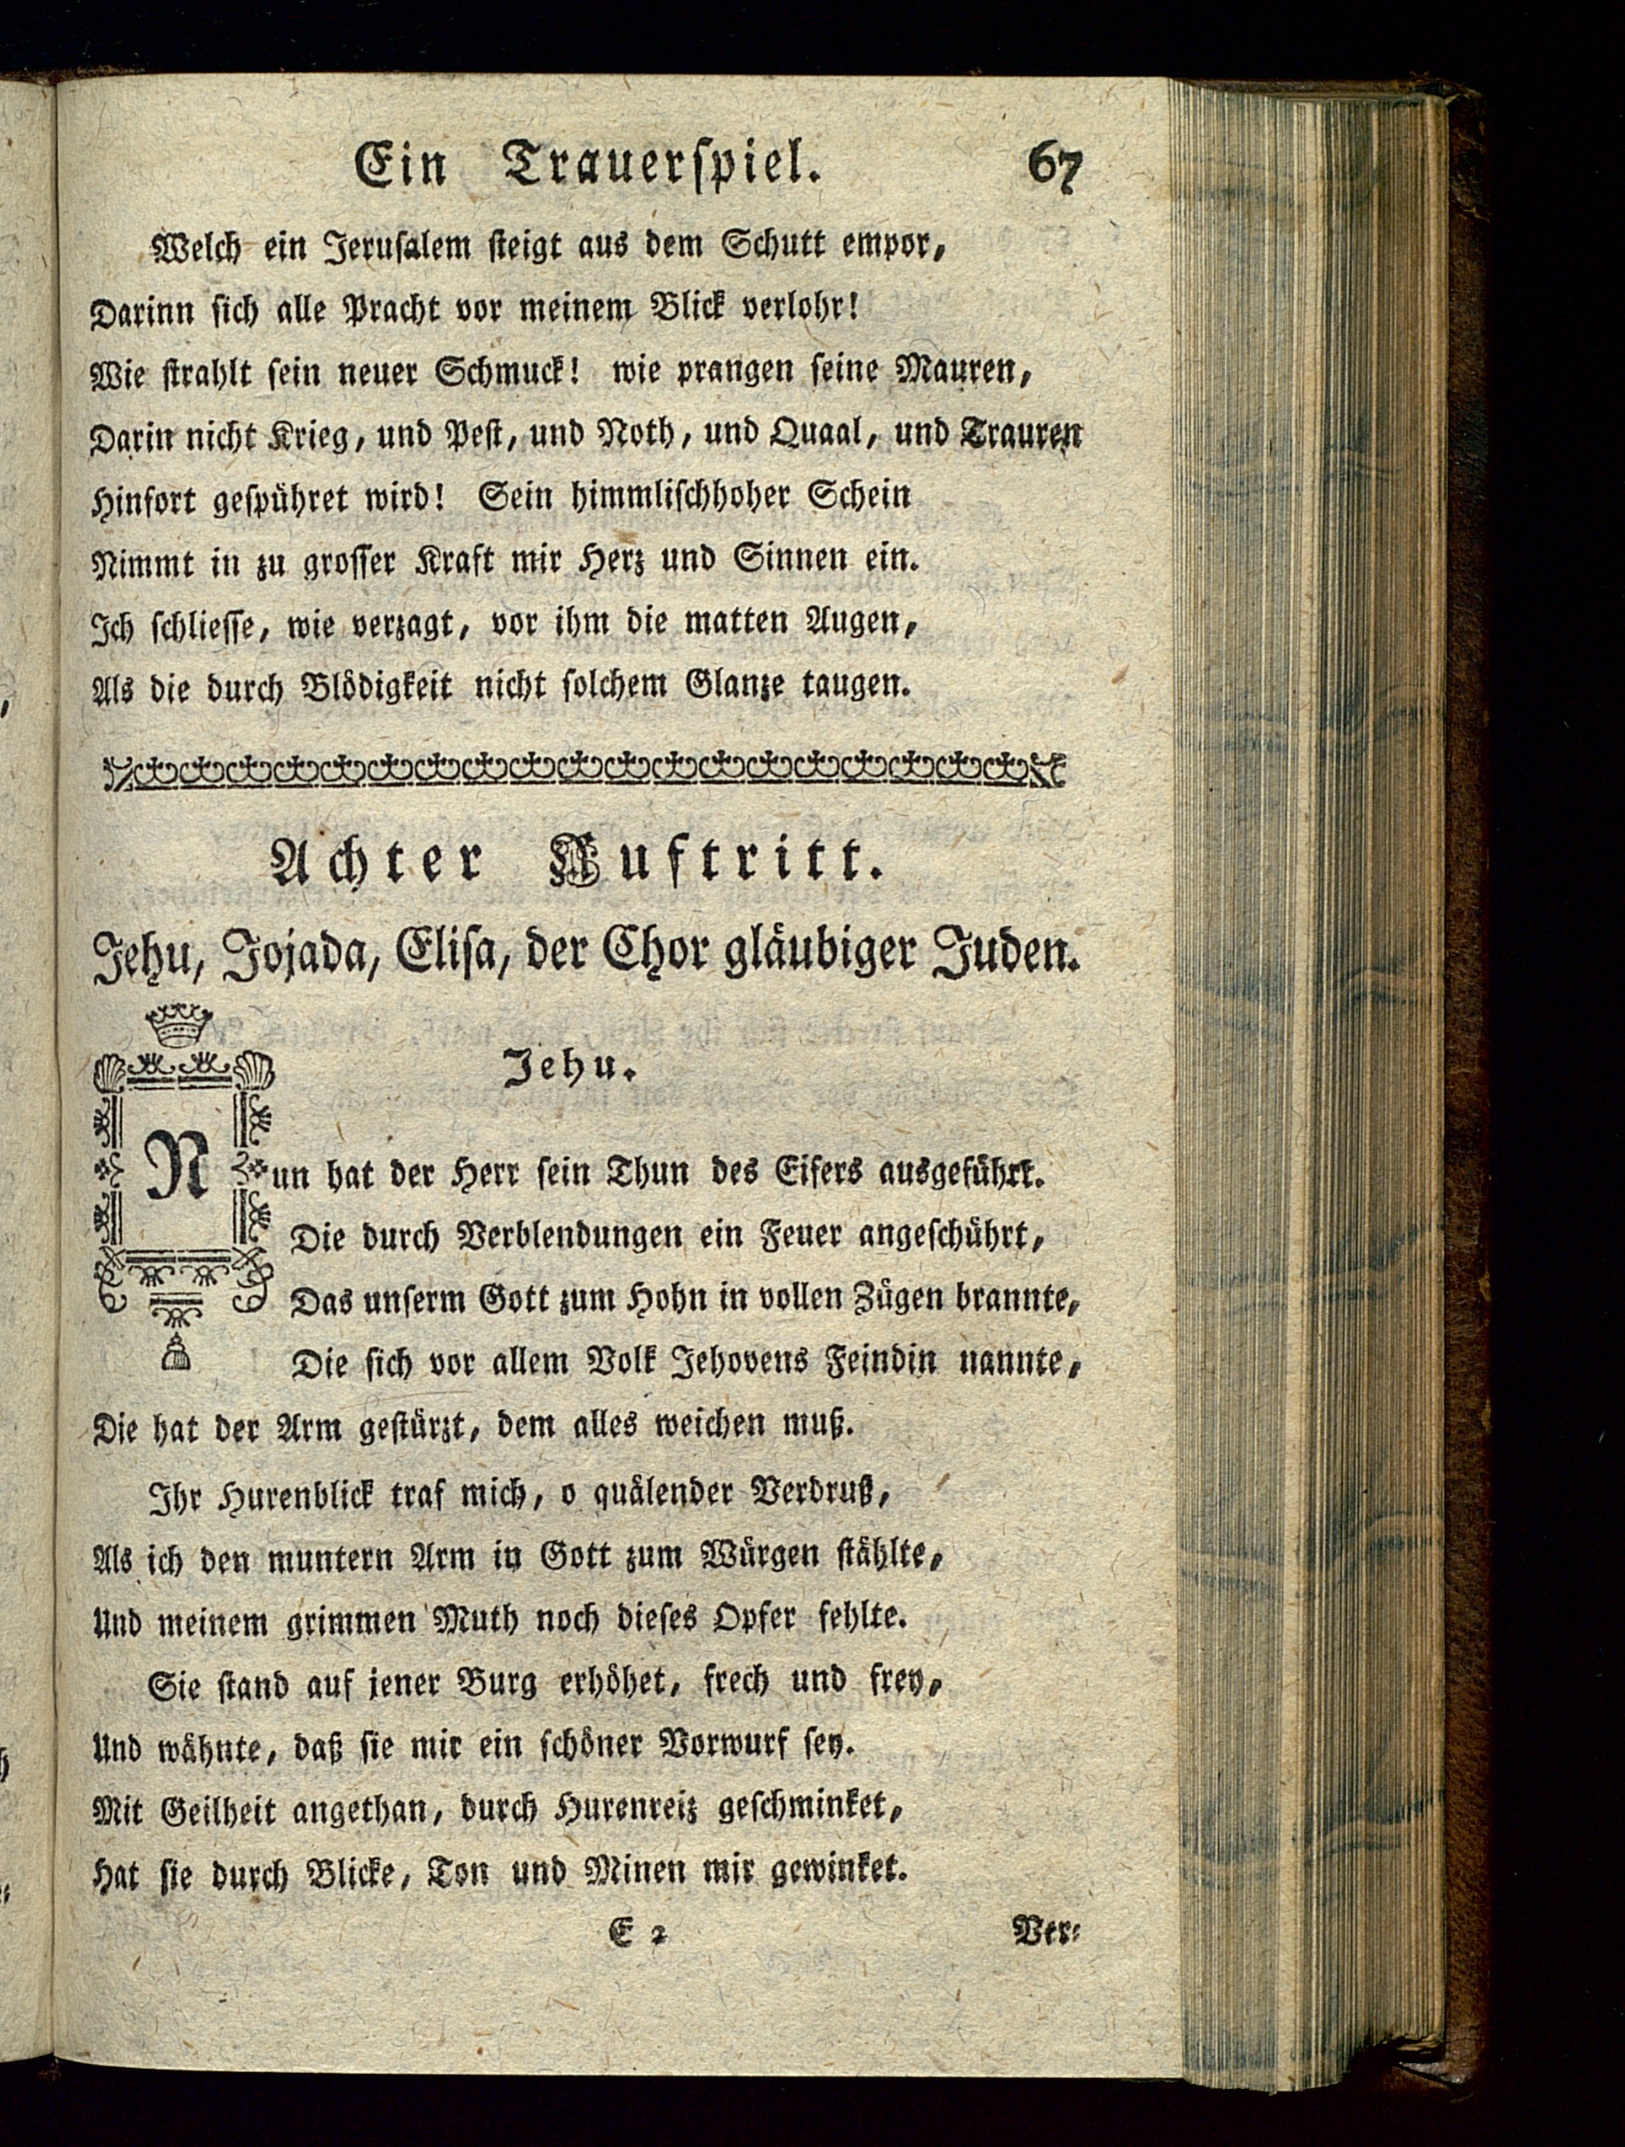 Ein Trauerſpiel. 67
Welch ein Jeruſalem ſteigt aus dem Schutt empor,
Darinn ſich alle Pracht vor meinem Blick verlohr!
Wie ſtrahlt ſein neuer Schmuck! wie prangen ſeine Mauren,
Darin nicht Krieg, und Peſt, und Noth, und Quaal, und Trauren
Hinfort geſpühret wird! Sein himmliſchhoher Schein
Nimmt in zu groſſer Kraft mir Herz und Sinnen ein.
Ich ſchlieſſe, wie verzagt, vor ihm die matten Augen,
Als die durch Blödigkeit nicht ſolchem Glanze taugen.
Achter Auftritt.
Jehu, Jojada, Eliſa, der Chor gläubiger Juden.
Jehu.
Nun hat der Herr ſein Thun des Eifers ausgeführt.
Die durch Verblendungen ein Feuer angeſchührt,
Das unſerm Gott zum Hohn in vollen Zügen brannte,
Die ſich vor allem Volk Jehovens Feindin nannte,
Die hat der Arm geſtürzt, dem alles weichen muß.
Ihr Hurenblick traf mich, o quälender Verdruß,
Als ich den muntern Arm in Gott zum Würgen ſtählte,
Und meinem grimmen Muth noch dieſes Opfer fehlte.
Sie ſtand auf jener Burg erhöhet, frech und frey,
Und wähnte, daß ſie mir ein ſchöner Vorwurf ſey.
Mit Geilheit angethan, durch Hurenreiz geſchminket,
Hat ſie durch Blicke, Ton und Minen mir gewinket.
E 2 Ver⸗